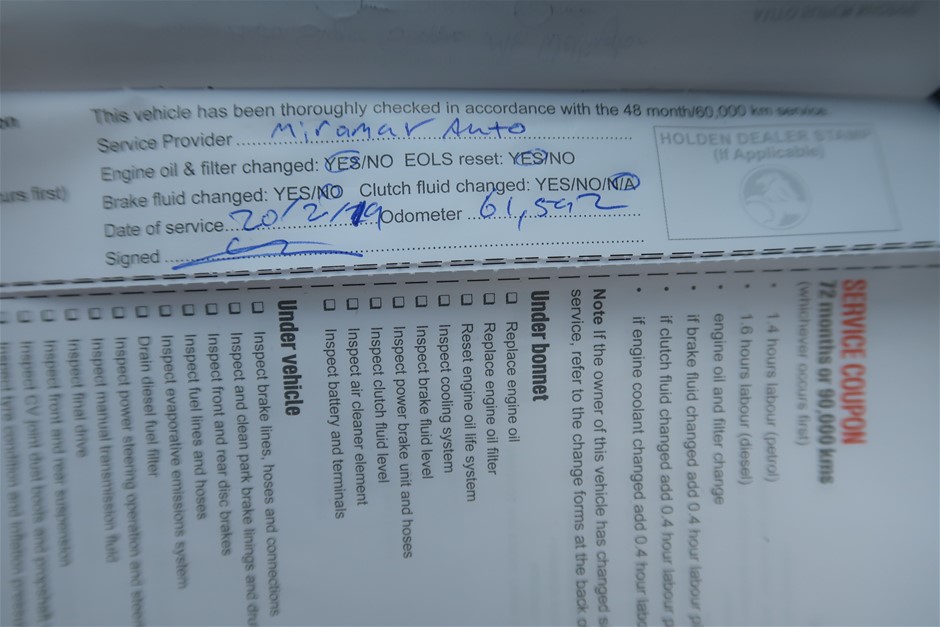 This vehicle has been thoroughly checked in accordance with the 48 month/60,000 km service
Service Provider Miramar Auto
Engine oil & filter changed: YES/NO EOLS reset: YES/NO
Brake fluid changed: YES/NO Clutch fluid changed: YES/NO/N/A
Date of service 20/2/19 Odometer 61,592
Signed
HOLDEN DEALER STAMP
(If Applicable)
urs first)
SERVICE COUPON
72 months or 90,000 kms
(whichever occurs first)
• 1.4 hours labour (petrol)
• 1.6 hours labour (diesel)
• engine oil and filter change
• if brake fluid changed add 0.4 hour labour p
• if clutch fluid changed add 0.4 hour labour p
• if engine coolant changed add 0.4 hour labo
Note If the owner of this vehicle has changed s
service, refer to the change forms at the back o
Under bonnet
☐ Replace engine oil
☐ Replace engine oil filter
☐ Reset engine oil life system
☐ Inspect cooling system
☐ Inspect brake fluid level
☐ Inspect power brake unit and hoses
☐ Inspect clutch fluid level
☐ Inspect air cleaner element
☐ Inspect battery and terminals
Under vehicle
☐ Inspect brake lines, hoses and connections
☐ Inspect and clean park brake linings and dru
☐ Inspect front and rear disc brakes
☐ Inspect fuel lines and hoses
☐ Inspect evaporative emissions system
☐ Drain diesel fuel filter
☐ Inspect power steering operation and steer
☐ Inspect manual transmission fluid
☐ Inspect final drive
☐ Inspect front and rear suspension
☐ Inspect CV joint dust boots and propshaft